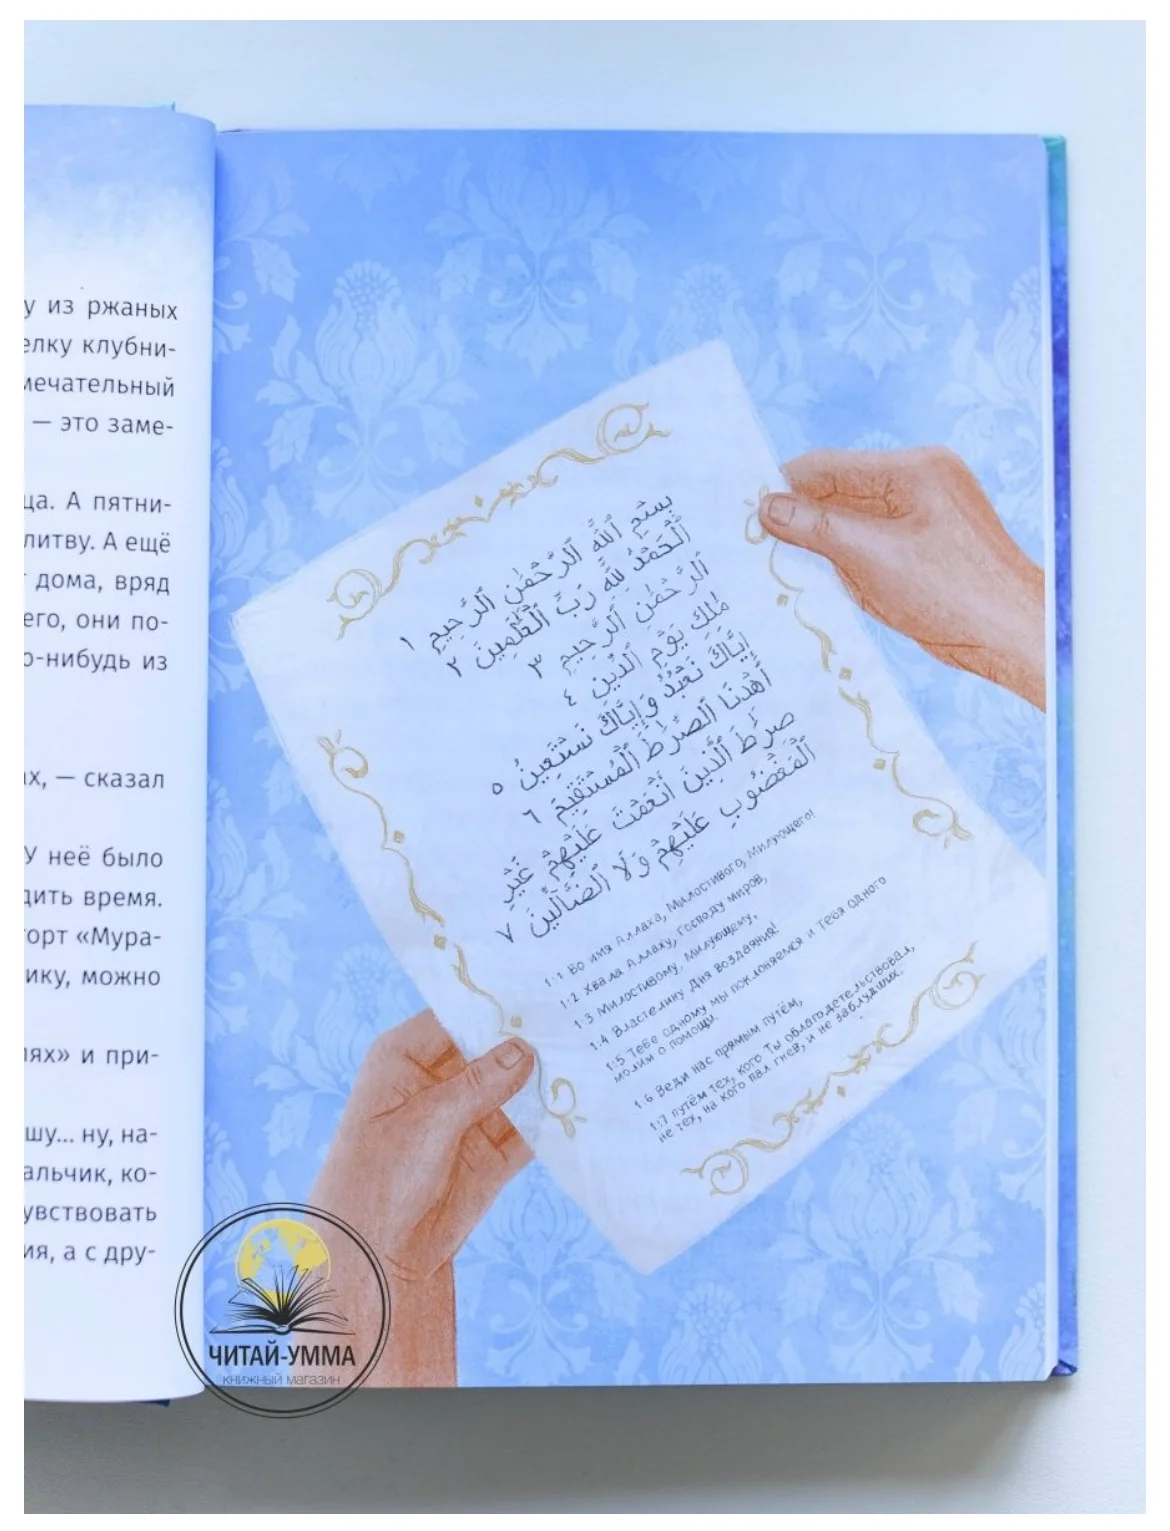 у из ржаных
елку клубни-
мечательный
— это заме-
ца. А пятни-
литву. А ещё
дома, вряд
его, они по-
о-нибудь из
ах, — сказал
У неё было
дить время.
торт «Мура-
ику, можно
лях» и при-
шу... ну, на-
альчик, ко-
увствовать
ия, а с дру-
بِسۡمِ ٱللَّهِ ٱلرَّحۡمَٰنِ ٱلرَّحِيمِ ١
ٱلۡحَمۡدُ لِلَّهِ رَبِّ ٱلۡعَٰلَمِينَ ٢
ٱلرَّحۡمَٰنِ ٱلرَّحِيمِ ٣
مَٰلِكِ يَوۡمِ ٱلدِّينِ ٤
إِيَّاكَ نَعۡبُدُ وَإِيَّاكَ نَسۡتَعِينُ ٥
ٱهۡدِنَا ٱلصِّرَٰطَ ٱلۡمُسۡتَقِيمَ ٦
صِرَٰطَ ٱلَّذِينَ أَنۡعَمۡتَ عَلَيۡهِمۡ غَيۡرِ
ٱلۡمَغۡضُوبِ عَلَيۡهِمۡ وَلَا ٱلضَّآلِّينَ ٧
1:1 Во имя Аллаха, Милостивого, Милующего!
1:2 Хвала Аллаху, Господу миров,
1:3 Милостивому, Милующему,
1:4 Властелину Дня воздаяния!
1:5 Тебе одному мы поклоняемся и Тебя одного
молим о помощи.
1:6 Веди нас прямым путём,
1:7 путём тех, кого Ты облагодетельствовал,
не тех, на кого пал гнев, и не заблудших.
ЧИТАЙ-УММА
КНИЖНЫЙ МАГАЗИН